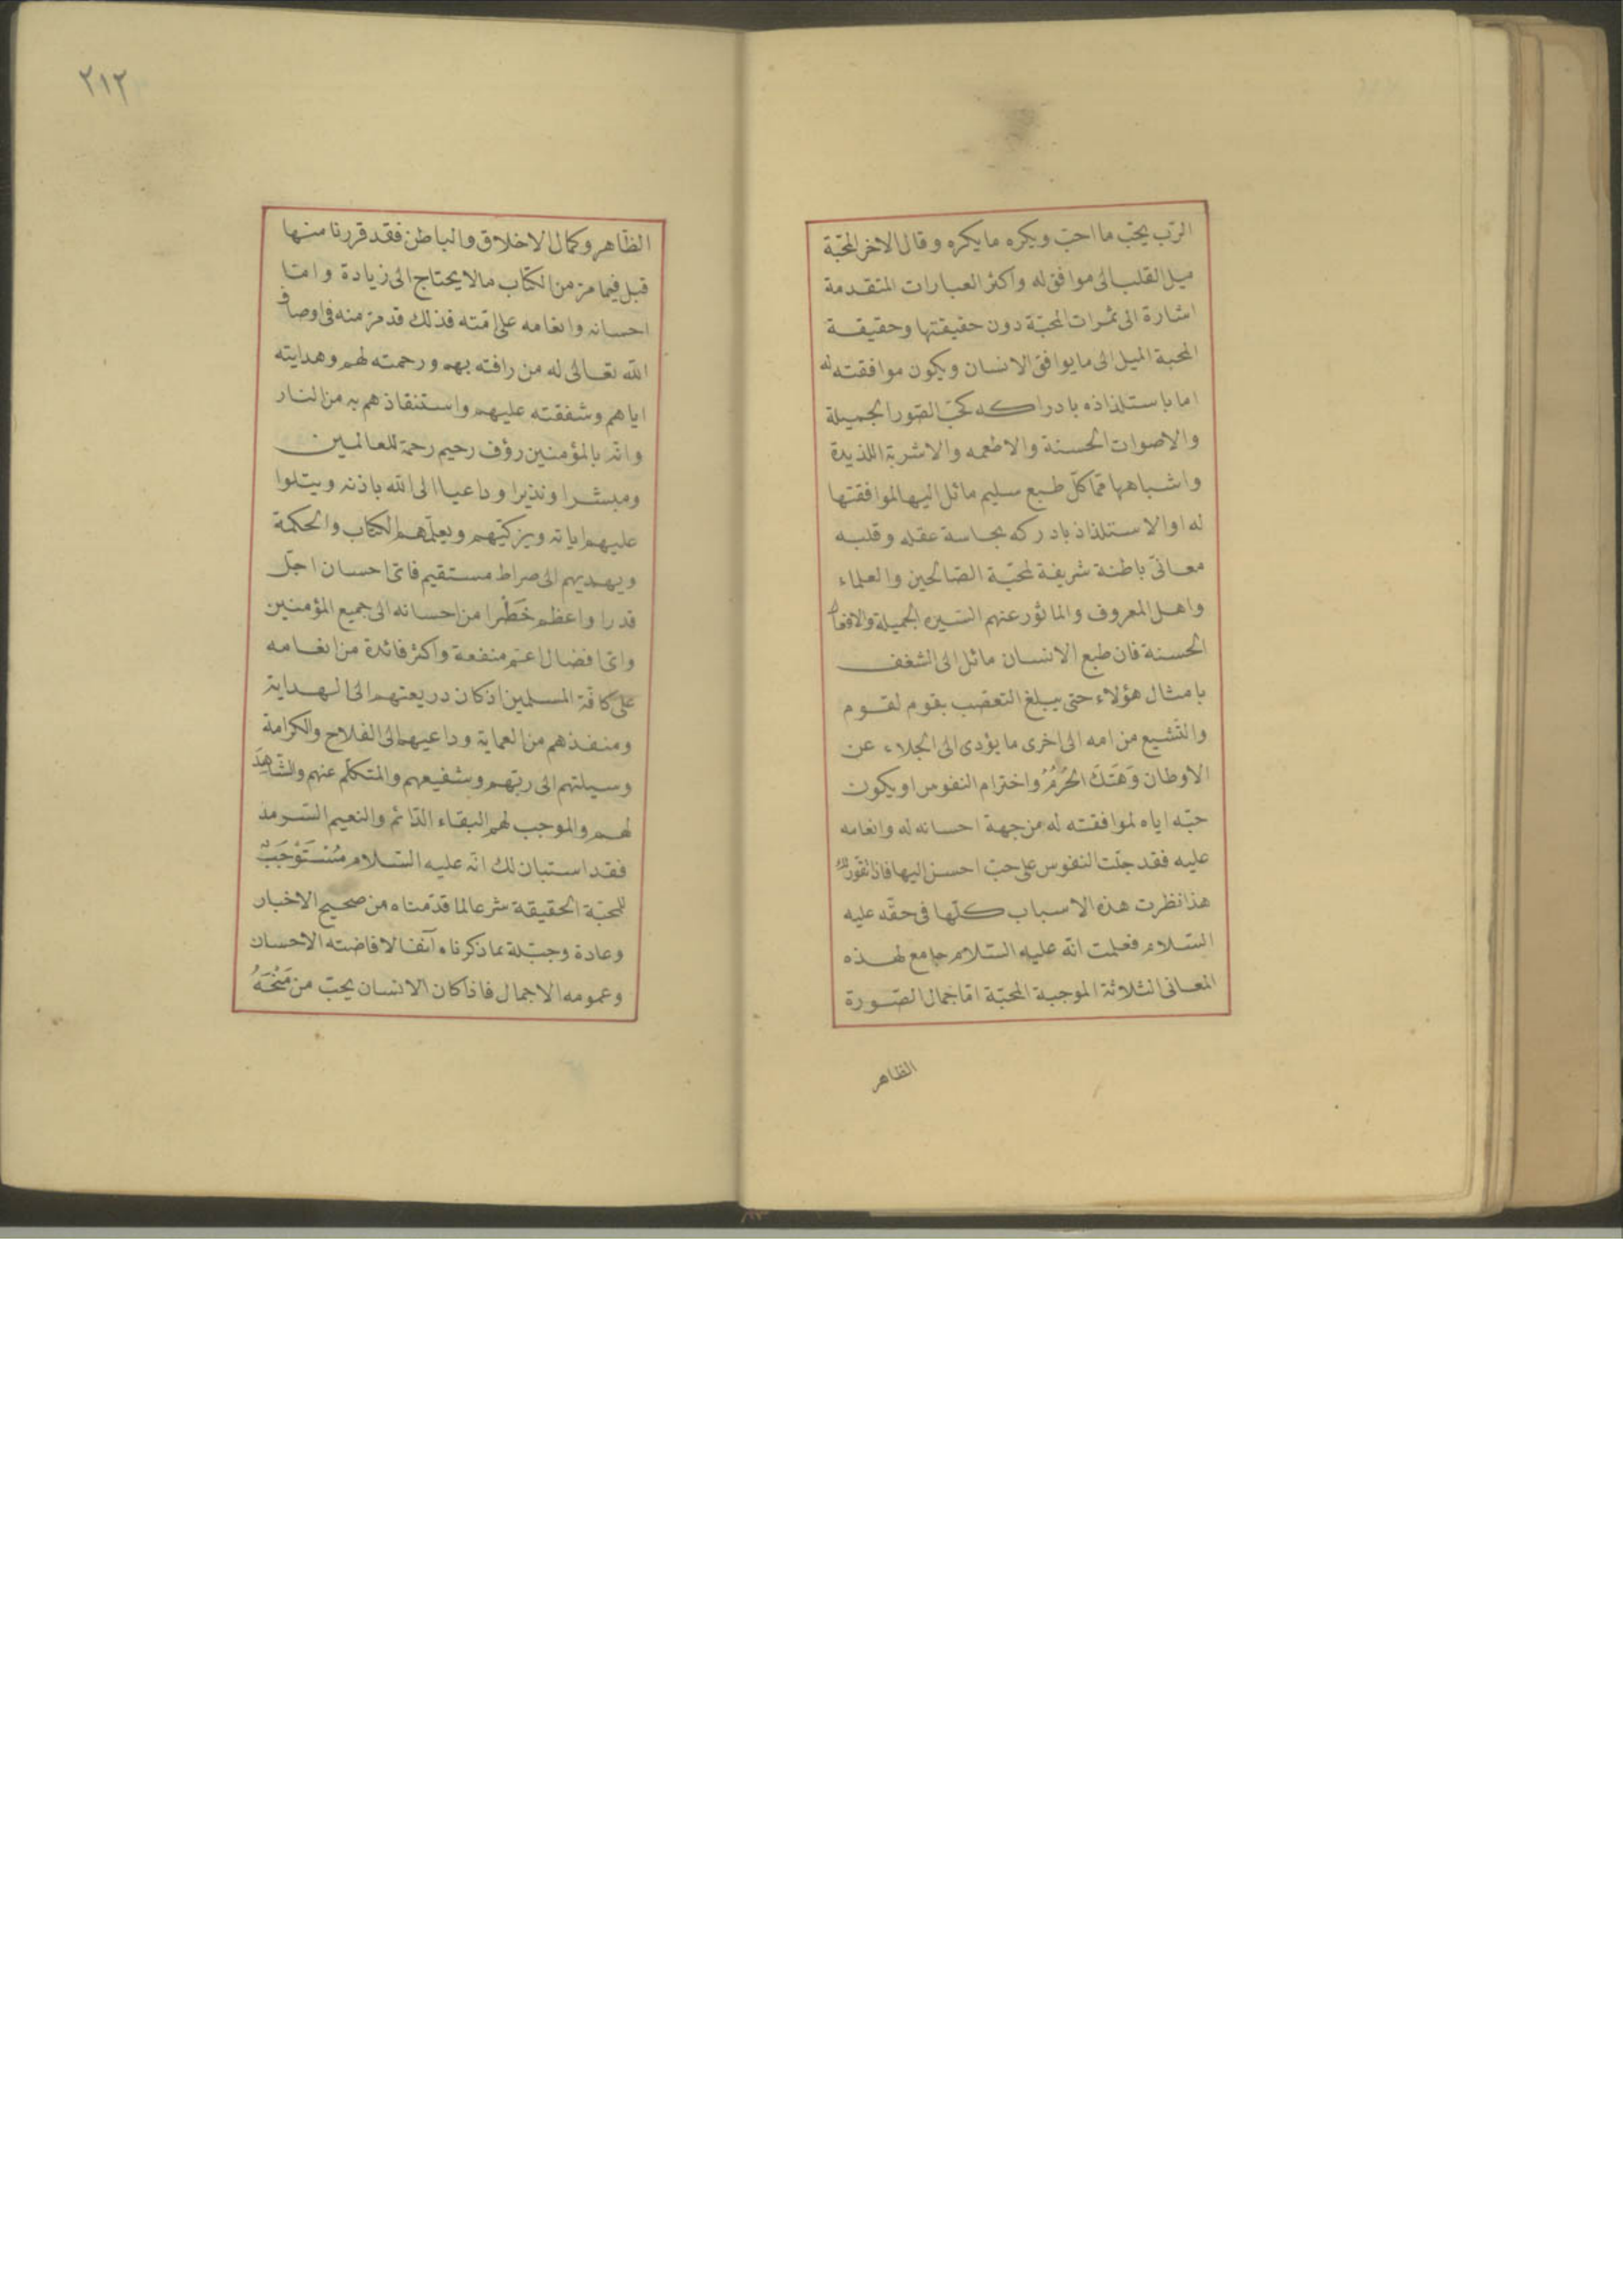 الرّب يحبّ ما احبّ ويكره ما يكره وقال الاخر المحبّة
ميل القلب الى موافق له واكثر العبارات المتقدمة
اشارة الى ثمرات المحبّة دون حقيقتها وحقيقة
المحبة الميل الى ما يوافق الانسان ويكون موافقته له
اما باستلذاذه بادراكه كحبّ الصّور الجميلة
والاصوات الحسنة والاطعمه والاشربة اللذيدة
واشباهها ممّا كلّ طبع سليم مائل اليها لموافقتها
له او الاستلذاذ بادركه بحاسة عقله وقلبه
معانى باطنة شريفة لمحبّة الصّالحين والعلماء
واهل المعروف والماثور عنهم السّيره الجميلة والافعال
الحسنة فان طبع الانسان مائل الى الشغف
بامثال هؤلاء حتى يبلغ التعصّب بقوم لقوم
والتّشيع من امه الى اخرى ما يؤدى الى الجلاء عن
الاوطان وَهَتَكَ الحُرُمُ واخترام النفوس او يكون
حبّه اياه لموافقته له من جهة احسانه له وانعامه
عليه فقد جلت النفوس على حبّ احسن اليها فاذا تقّور لك
هذا نظرت هذه الاسباب كلّها فى حقّه عليه
السّلام فعلمت انّه عليه السّلام جامع لهذه
المعانى الثلاثة الموجبة المحبّة امّا جمال الصّورة
الظاهر
٢١٢
الظّاهر وكمال الاخلاق والباطن فقد قررنا منها
قبل فيما مرّ من الكتاب ما لا يحتاج الى زيادة وامّا
احسانه وانعامه على امّته فذلك قد مرّ منه فى اوصاف
الله تعالى له من رافته بهم ورحمته لهم وهدايته
اياهم وشفقته عليهم واستنقاذهم به من النار
وانّه بالمؤمنين رؤف رحيم رحمة للعالمين
ومبشرا ونذيرا وداعيا الى الله باذنه ويتلوا
عليهم اياته ويزكيّهم ويعلّمهم الكتاب والحكمة
ويهديهم الى صراط مستقيم فاىّ احسان اجلّ
قدرا واعظم خَطْرا من احسانه الى جميع المؤمنين
واىّ افضال اعمّ منفعة واكثر فائدة من انعامه
على كافّة المسلمين اذ كان دريعتهم الى الهداية
ومنفذهم من العماية وداعيهم الى الفلاح والكرامة
وسيلتهم الى ربّهم وشفيعهم والمتكلّم عنهم والشّاهِدَ
لهم والموجب لهم البقاء الدّائم والنعيم السّرمد
فقد استبان لك انّه عليه السّلام مُسْتَوْجَبٌ
للمحبّة الحقيقة شرعا لما قدّمناه من صحيح الاخبار
وعادة وجبّلة بما ذكرناه آنفا لافاضته الاحسان
وعمومه الاجمال فاذا كان الانسان يحبّ من مَنْحَهُ